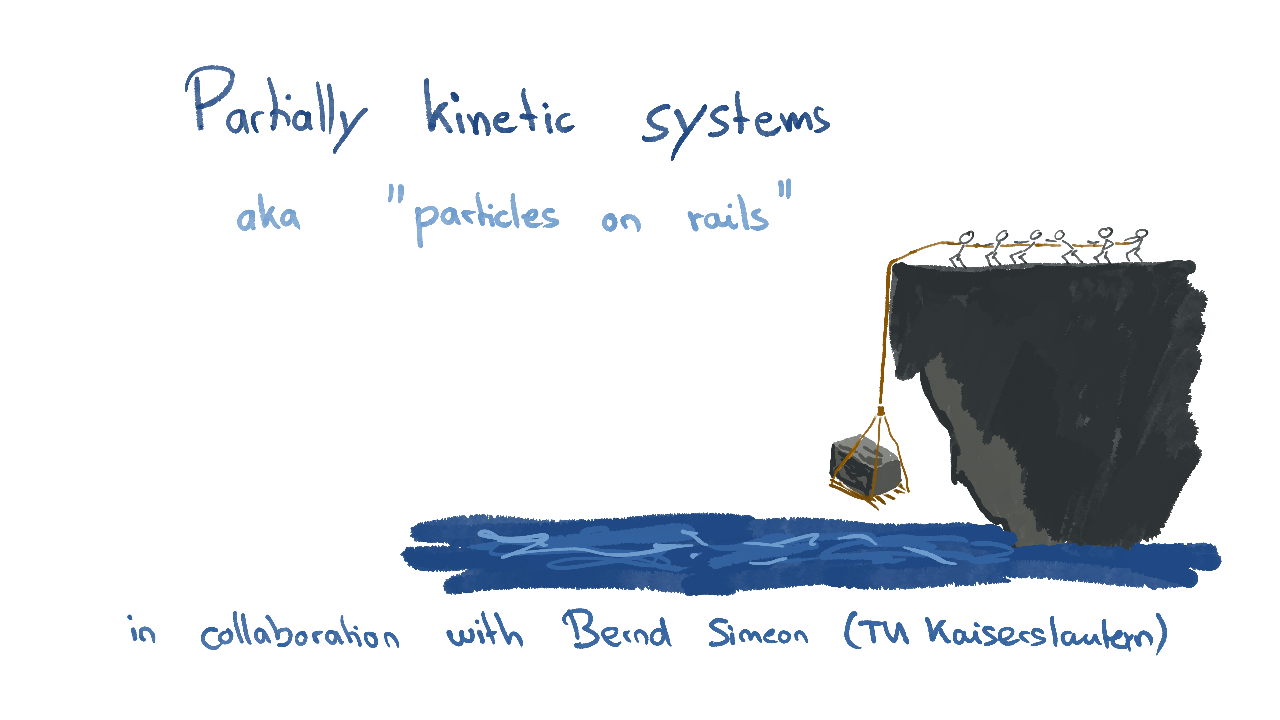 Partially kinetic systems
aka "particles on rails"
in collaboration with Bernd Simeon (TU Kaiserslautern)